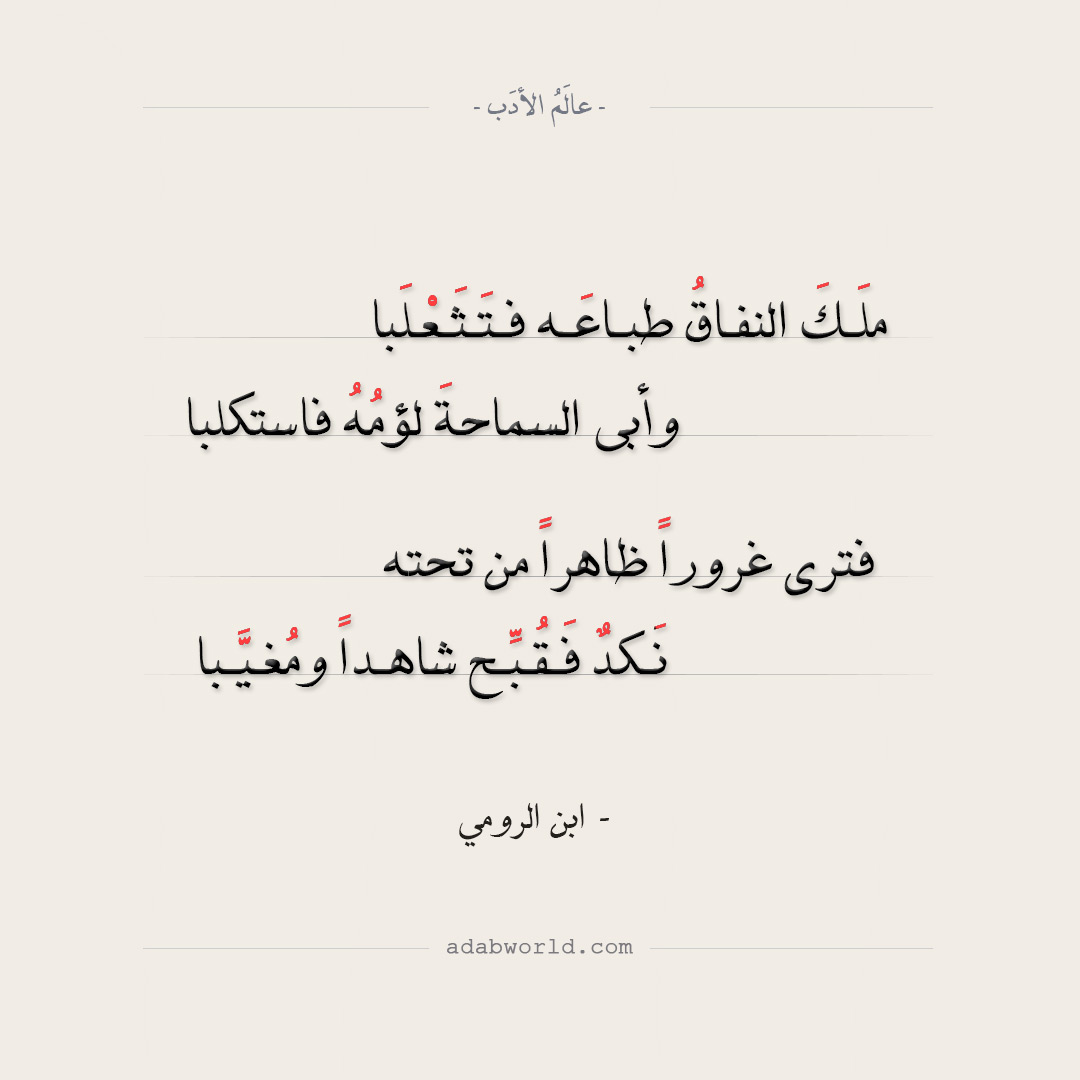 - عالَمُ الأدَب -
ملَكَ النفاقُ طباعَه فتَثَعْلَبا
وأبى السماحةَ لؤمُهُ فاستكلبا
فترى غروراً ظاهراً من تحته
نَكدٌ فَقُبِّح شاهداً ومُغيَّبا
- ابن الرومي
adabworld.com